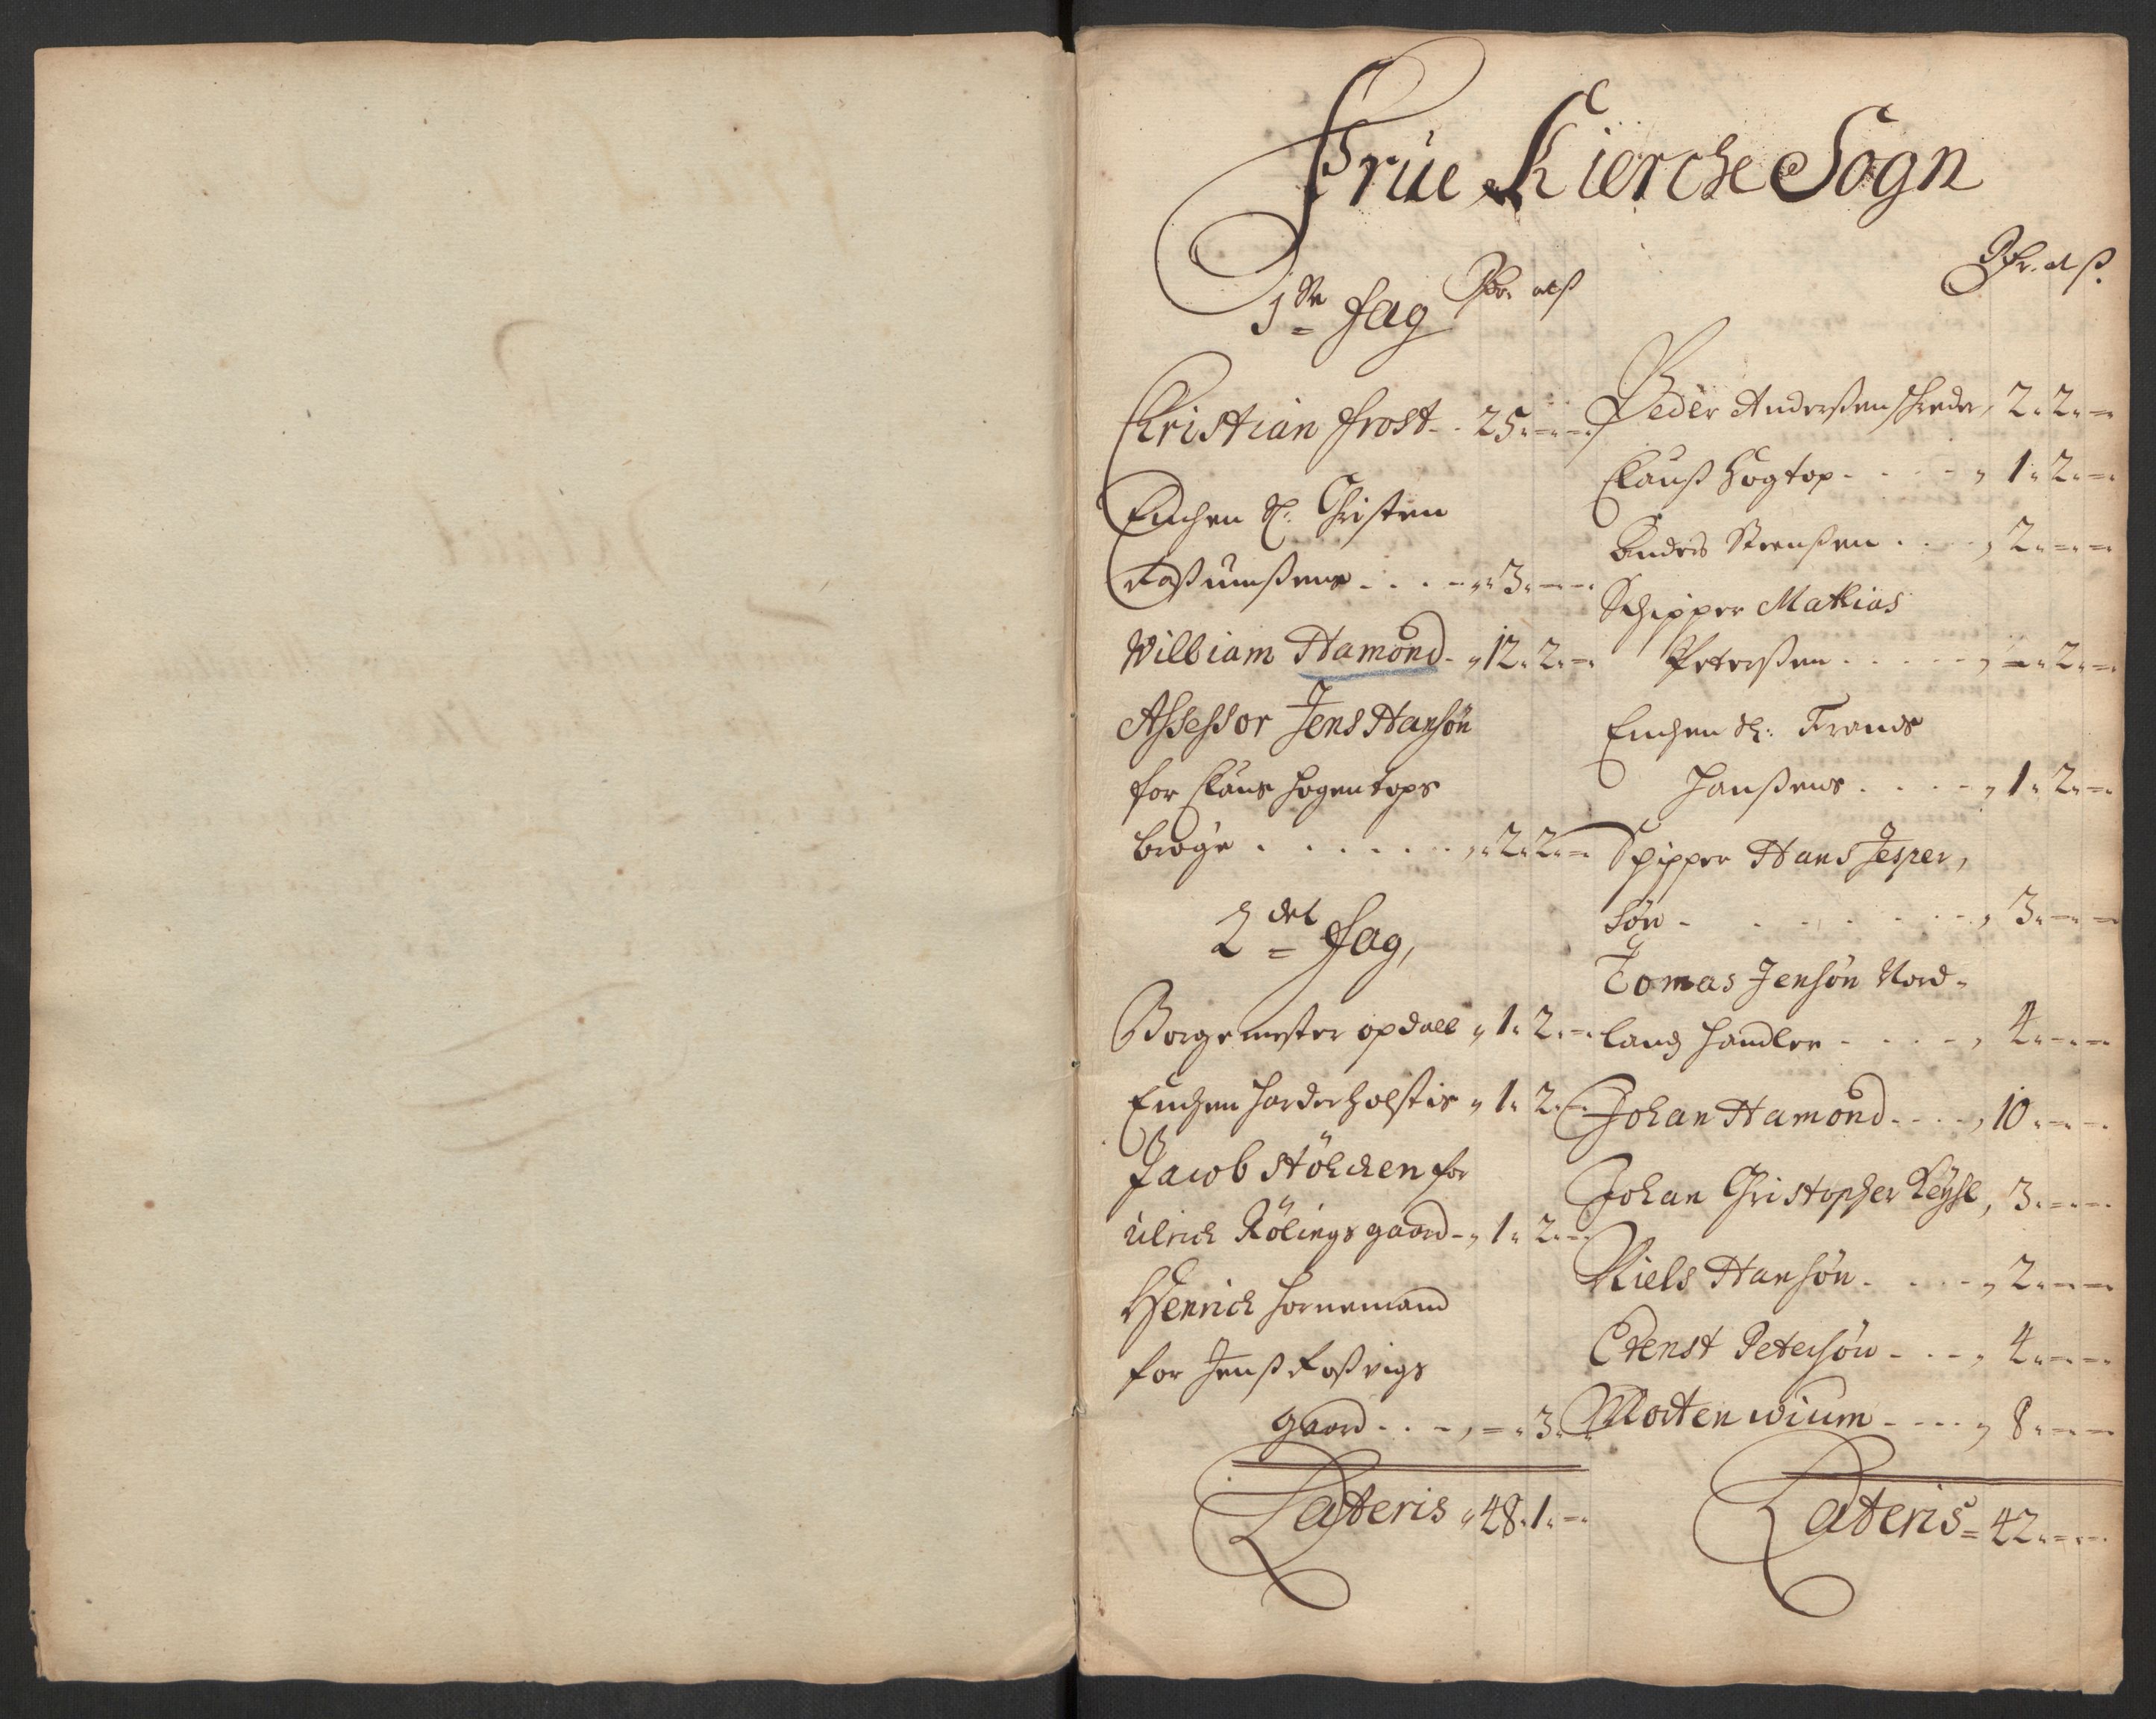 Frue Kierche Sogn
1ste fag
Christian frost - - 25 " - " - "
Enchen Sl: Christen
Rasmusens - . . . - " 3 " - " -
William Hamond - " 12 " 2 " - "
Assessor Jens Hansøn
for Claus Hogentops
brøge . . . . . . " 2 " 2 " -
2det fag,
Borgemester opdall " 1 " 2 " -
Enchen Harderholstis " 1 " 2 " -
Jacob Stöhcken for
Ulrich Rölings gaard - " 1 " 2 " -
Henrich Hornemand
for Jenß Roßvigs
gaard - . . - , - " 3 " -
Lateris " 48 " 1 " -
Peder Anderßen , 2 " 2 " -
Clauß Hogtop - . . . - " 1 " 2 " -
Anders Steenßen . . . , 2 " - " -
Schipper Mathias
Peterßen . . . . - , - " 2 " -
Enchen Sl: Frands
Hanßens . . . . - " 1 " 2 " -
Schipper Hans Jesper,
søn - . . . . . - , 3 " - " -
Tomas Jensøn Nord-
landz handler - . . . - , 4 " - " -
Johan Hamond - . . - , 10 " - " -
Johan Christopher , 3 " - " -
Niels Hansøn . . . . - " 2 " - " -
Petersøn - . . - , 4 " - " -
Morten wium - - - - " 8 " - " -
Lateris = 42 " - " -